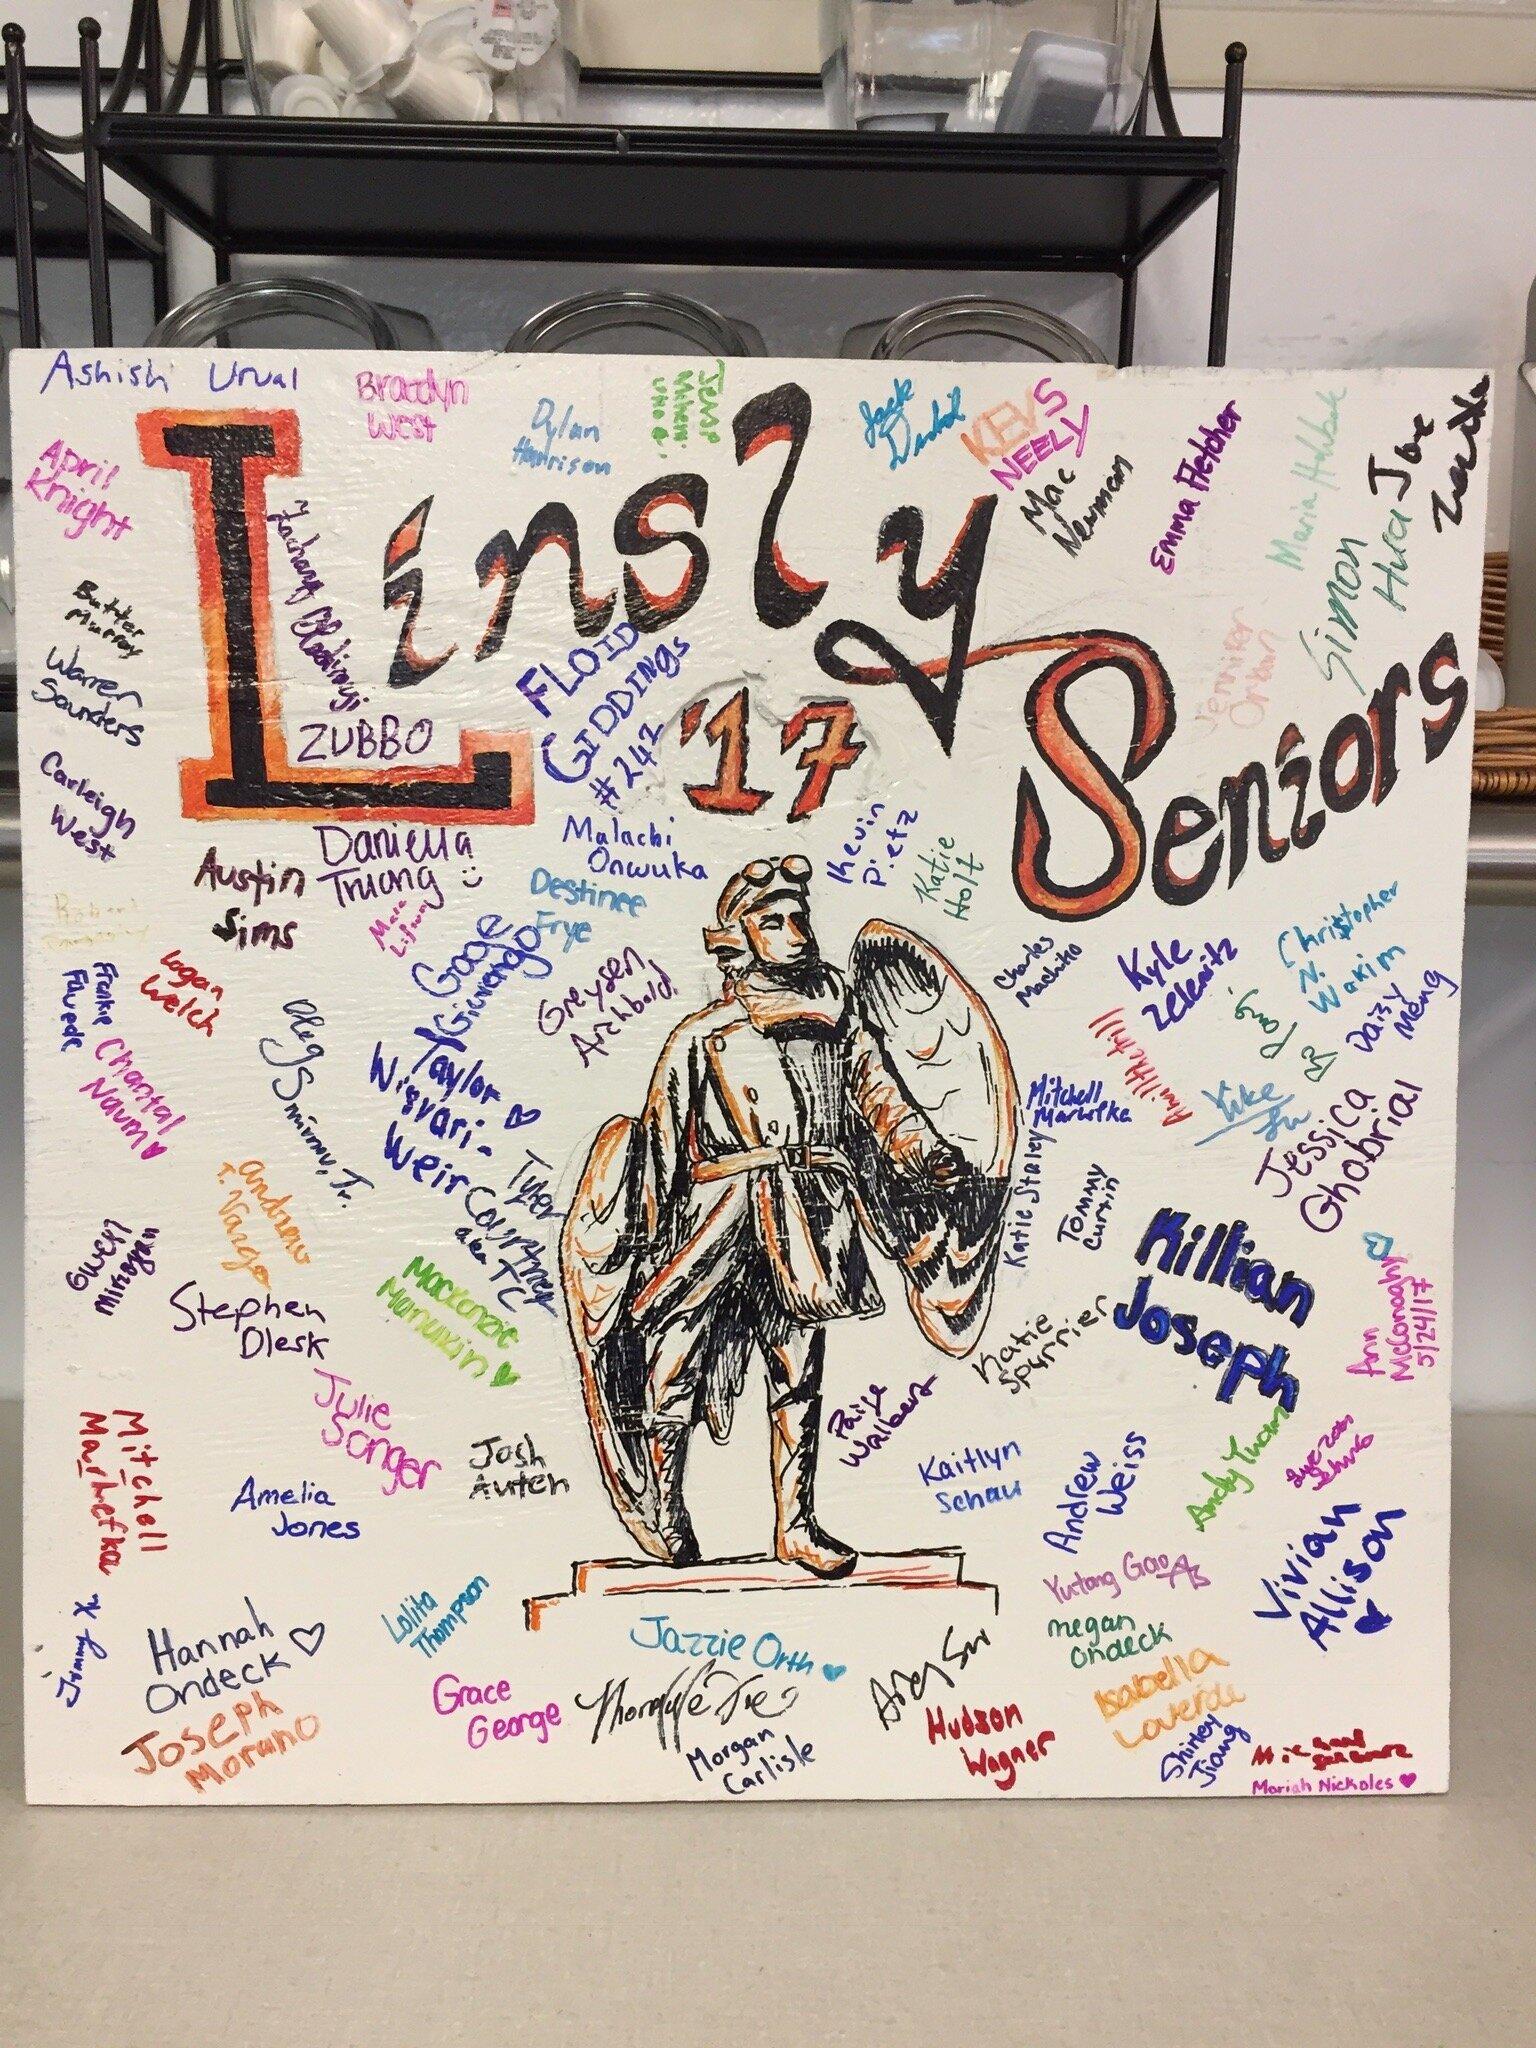 Ashish Urval
Braedyn
West
Dylan
Harrison
Jack
KEVS
NEELY
Mac
Newman
Emma Fletcher
Maria
Joe
Simon
Hura
April
Knight
Linsly
'17
Seniors
Zachary
ZUBBO
FLOID
GIDDINGS
#242
Jennifer
Orban
Butter
Murray
Warren
Saunders
Carleigh
West
Austin
Sims
Daniella
Truong
Malachi
Onwuka
Destinee
Frye
Kevin
Pietz
Katie
Holt
Robert
Logan
Welch
Mara
Gage
Giovengo
Greysen
Archbold
Charles
Kyle
Zelenitz
Christopher
N.
Wakim
Daizy
Meng
Frankie
Chantal
Naum
Smirnu, Jr.
Taylor
Wisvari-
Weir
Mitchell
Marhefka
Jessica
Ghobrial
Andrew
T. Vargo
Tyler
aka TC
Katie Staley
Tommy
Curtin
Killian
Joseph
Gwelyn
Stephen
Olesk
Mackenzie
Manukin
Katie
Spurrier
Ann
McConaghy
5/24/17
Julie
Songer
Paige
Mitchell
Marhefka
Amelia
Jones
Josh
Auten
Kaitlyn
Schau
Andrew
Weiss
Andy
Vivian
Allison
Jimmy Xu
Hannah
Ondeck
Lolita
Thompson
Jazzie Orth
Yutong Gao
Megan
Ondeck
Isabella
Loverde
Joseph
Morano
Grace
George
Morgan
Carlisle
Hudson
Wagner
Shirley
Jiang
Mariah Nickoles